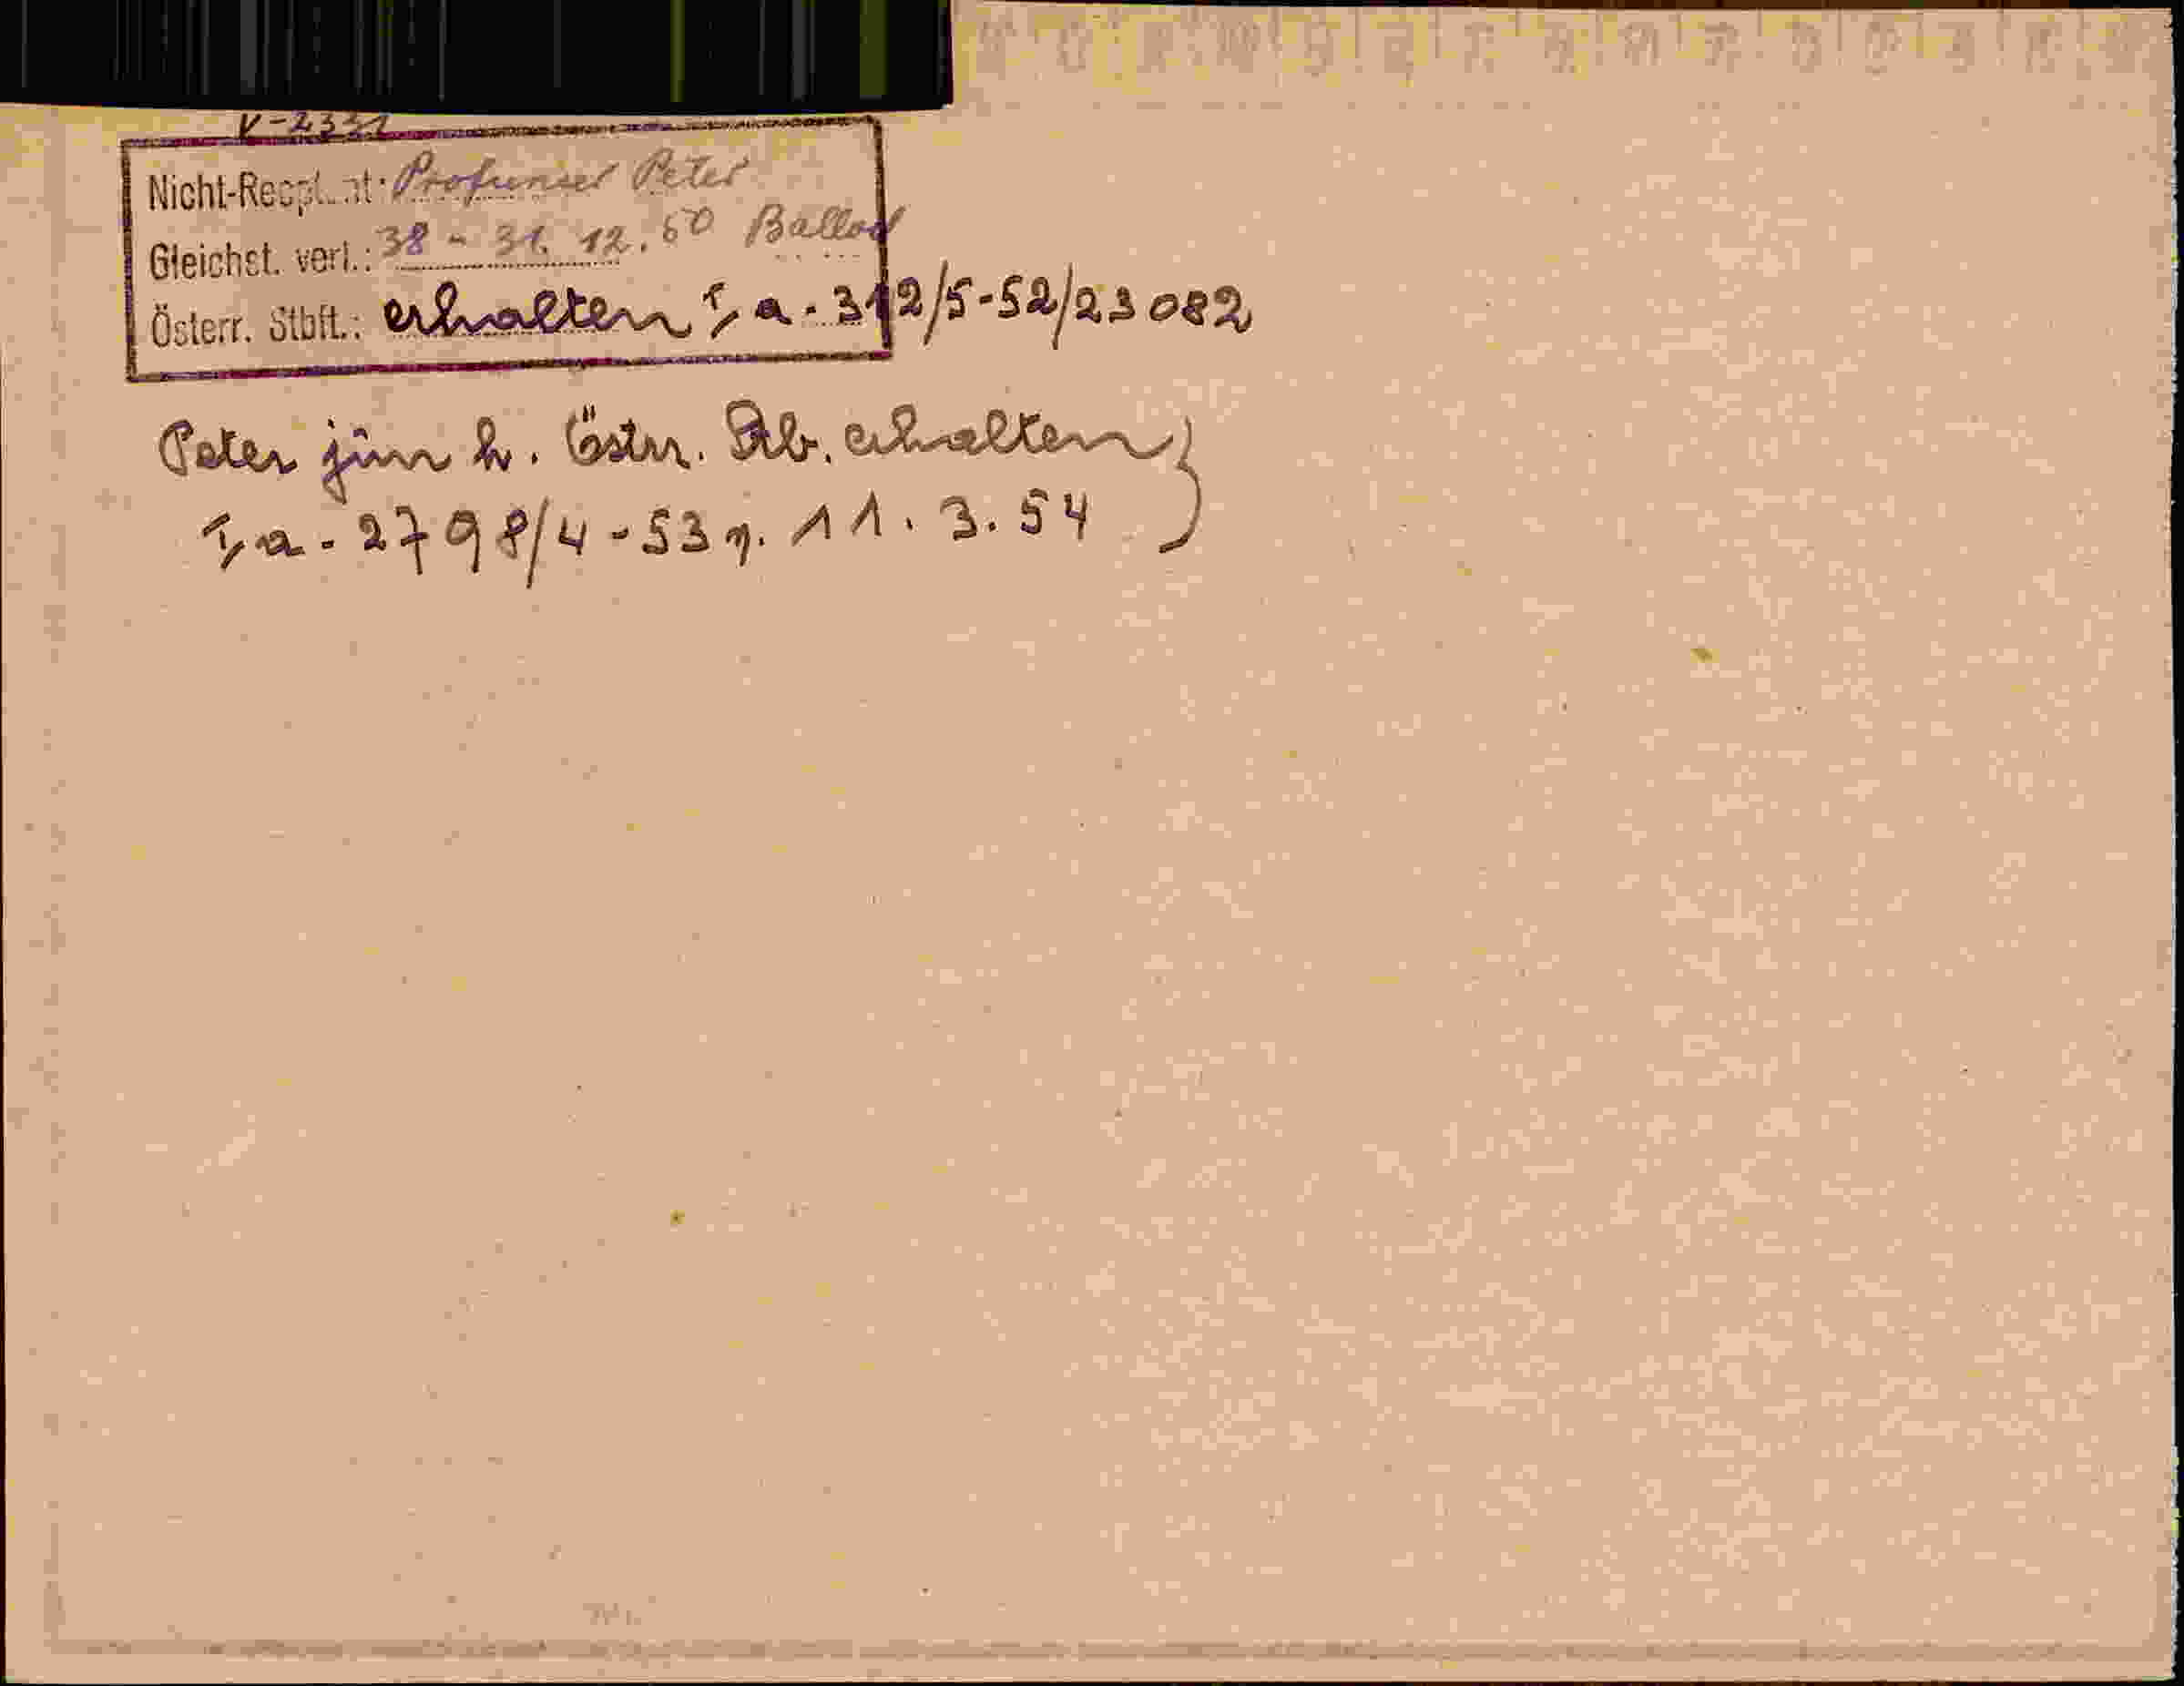 V-2331
Nicht-Reopt.nt: Profunser Peter
Gleichst. verl.: 38 - 31. 12. 50 Ballod
Österr. Stbft.: erhalten Ia-312/5-52/23082
Peter jun h. Östrr. Stb. erhalten
Ia-2798/4-53 v. 11. 3. 54